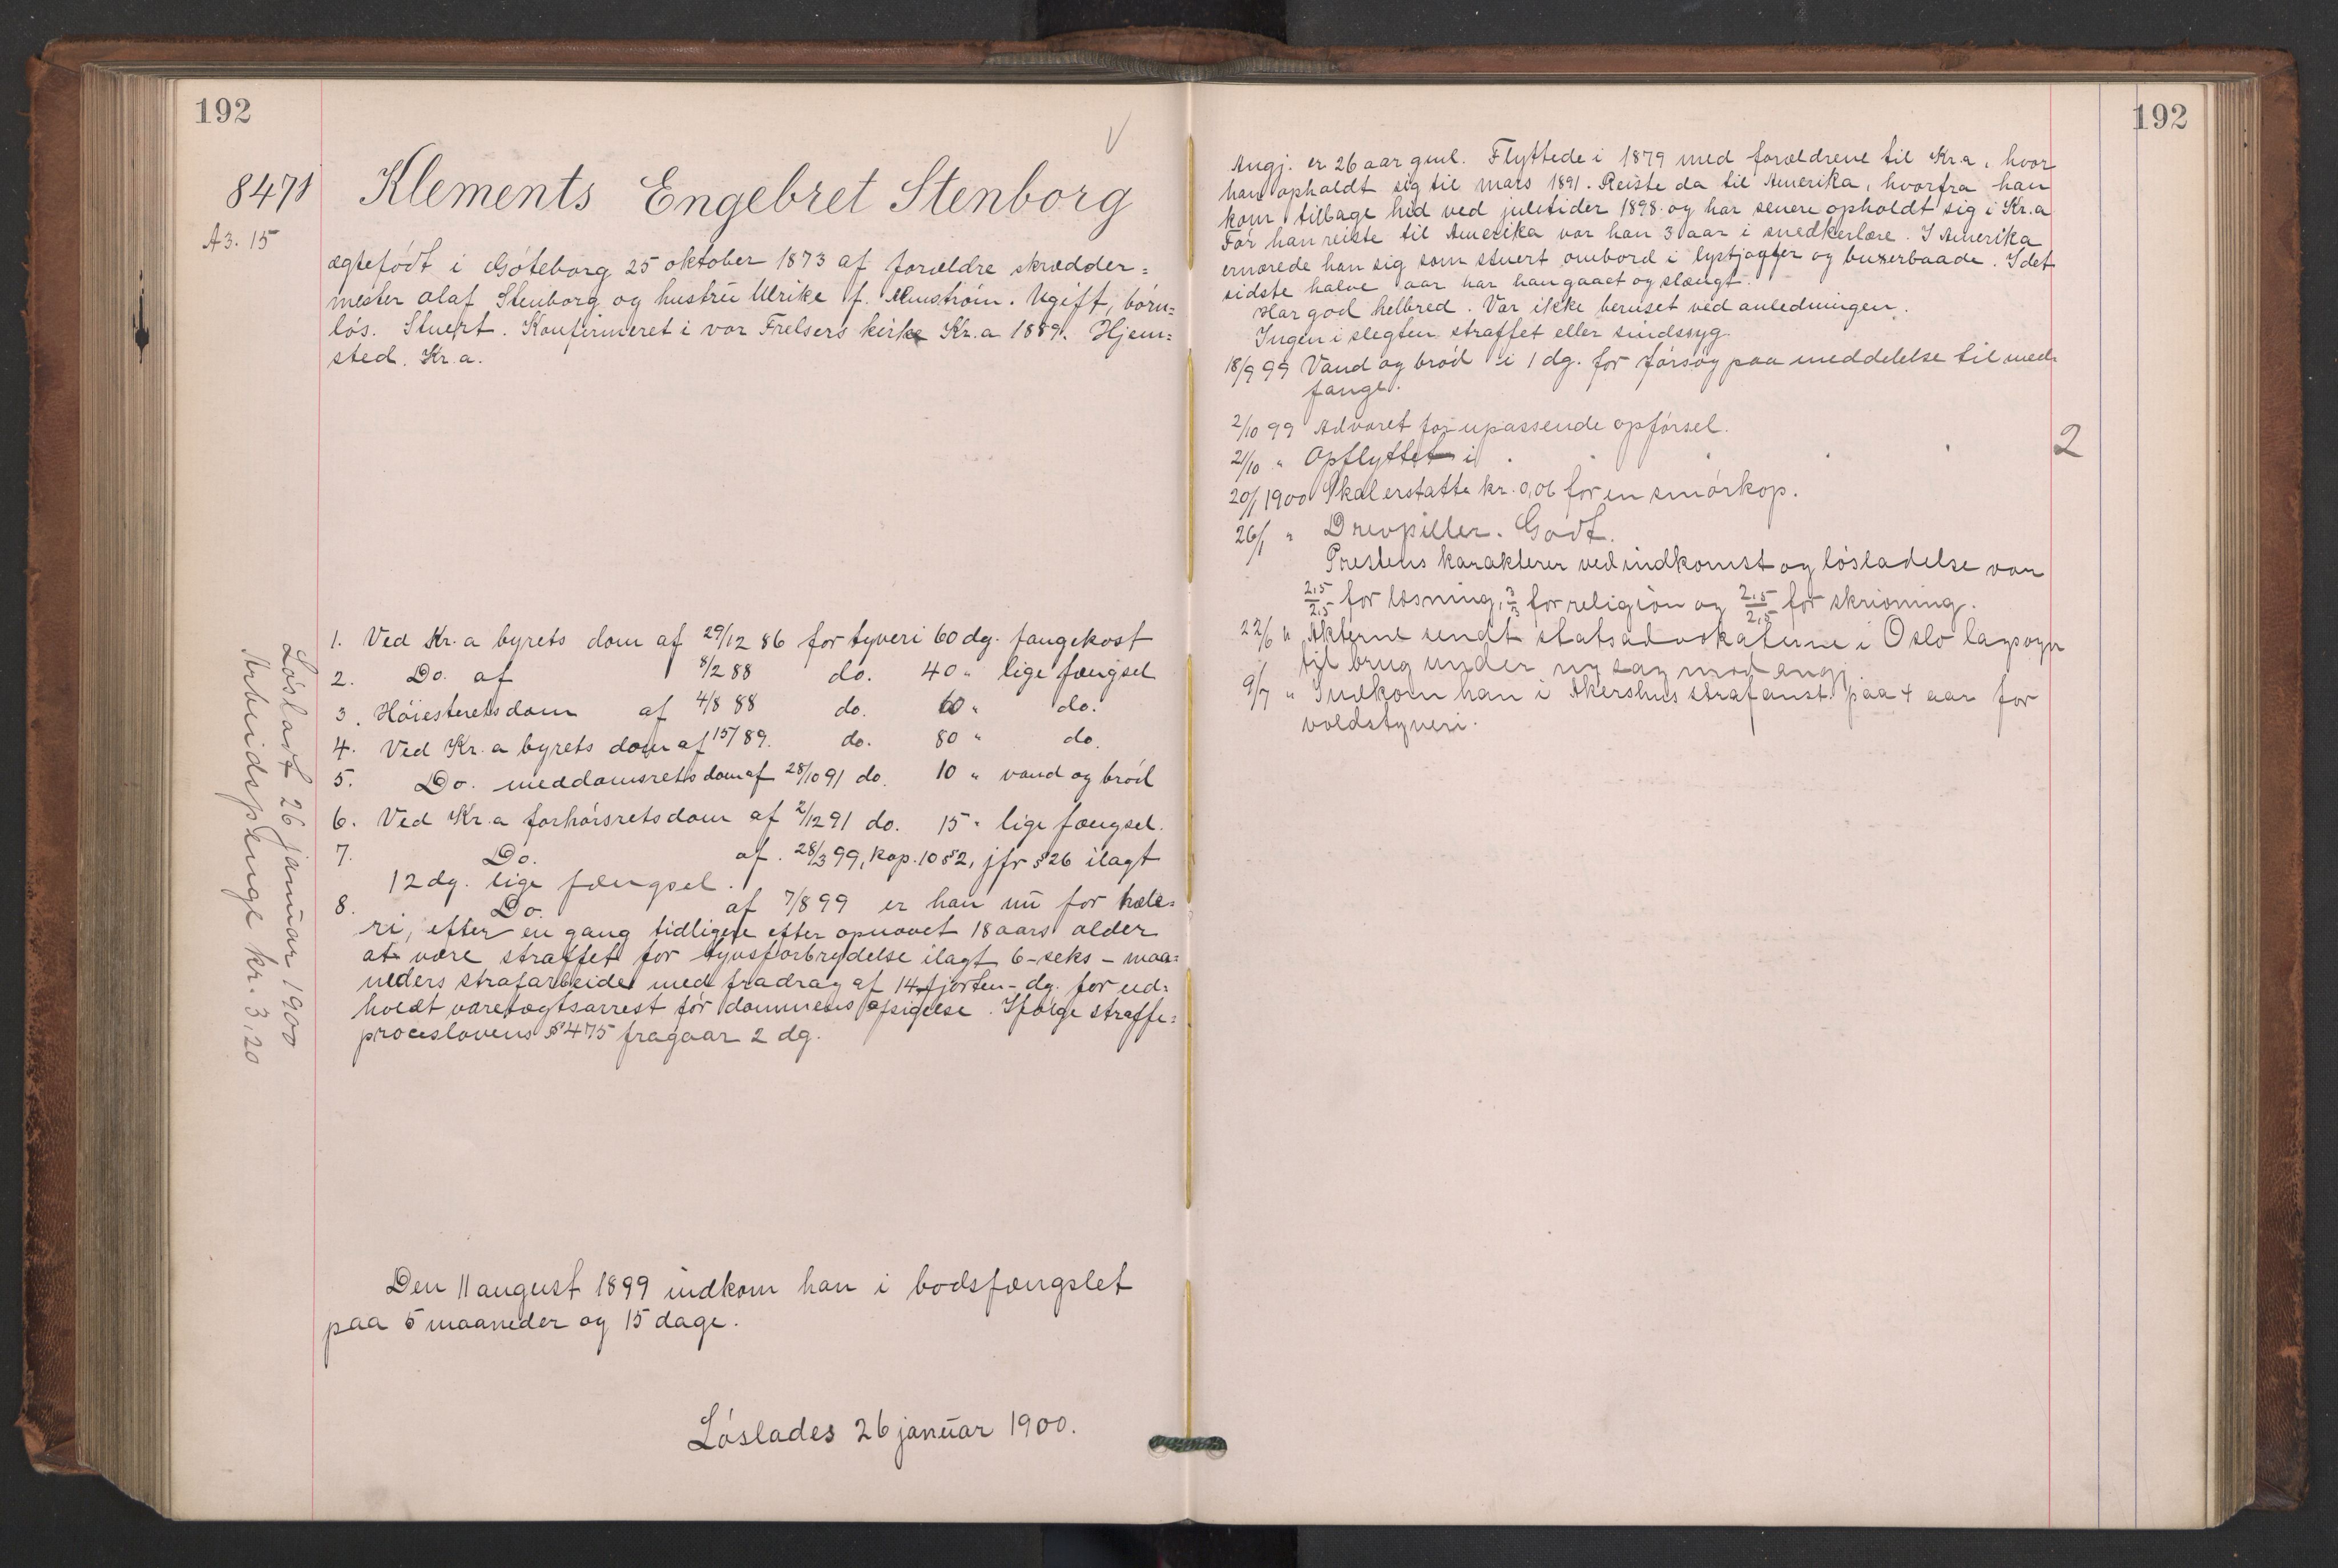 192
8471
A3. 15
Klements Engebret Stenborg
ægtefödt i Göteborg 25 oktober 1873 af forældre skrædder=
mester Olaf Stenborg og hustru Ulrike f. Almström. Ugift, börn=
lös. Stuert. Konfirmeret i vor Frelsers kirke Kr.a 1889. Hjem=
sted. Kr.a.
1. Ved Kr.a byrets dom af 29/12 86 for tyveri 60 dg. fangekost
2. Do. af 8/2 88 do. 40 " lige fængsel
3. Höiesteretsdom af 4/8 88 do. 60 " do.
4. Ved Kr.a byrets dom af 15/ 89. do. 80 " do.
5. Do. meddomsretsdom af 28/10 91 do. 10 " vand og bröd
6. Ved Kr.a forhörsretsdom af 2/12 91 do. 15 " lige fængsel.
7. Do. af. 28/3 99, kap. 10 § 2, jfr § 26 ilagt
12 dg. lige fængsel.
8. Do. af 7/8 99 er han nu for hæle=
ri, efter en gang tidligere efter opnaaet 18 aars alder
at være straffet for tyvsforbrydelse ilagt 6-seks-maa=
neders strafarbeide med fradrag af 14-fjorten-dg. for ud=
holdt varetægtsarrest för dommens afsigelse. Ifölge straffe=
proceslovens § 475 fragaar 2 dg.
Lösladt 26 januar 1900
Arbeidspenge kr. 3,20
Den 11 august 1899 indkom han i bodsfængslet
paa 5 maaneder og 15 dage.
Löslades 26 januar 1900.
192
Angj. er 26 aar gml. Flyttede i 1879 med forældrene til Kr.a, hvor
han opholdt sig til mars 1891. Reiste da til Amerika, hvorfra han
kom tilbage hid ved juletider 1898 og har senere opholdt sig i Kr.a
För han reiste til Amerika var han 3 aar i snedkerlære. I Amerika
ernærede han sig som stuert ombord i lystjagter og buxerbaade. I det
sidste halve aar har han gaaet og slængt.
Har god helbred. Var ikke beruset ved anledningen.
Ingen i slegten straffet eller sindssyg.
18/9 99 Vand og bröd i 1 dg. for forsög paa meddelelse til med=
fange.
2/10 99 Advaret for upassende opförsel.
21/10 " Opflyttet i . . . . 2
20/1 1900 Skal erstatte kr. 0,06 for en smörkop.
26/1 " Drevpiller. Godt.
Prestens karakterer ved indkomst og lösladelse var
2,5/2,5 for læsning, 3/3 for religion og 2,5/2,5 for skrivning.
22/6 " Akterne sendt statsadvokaterne i Oslo lagsogn
til brug under ny sag mod angj.
9/7 " Indkom han i Akershus strafanst. paa 4 aar for
voldstyveri.